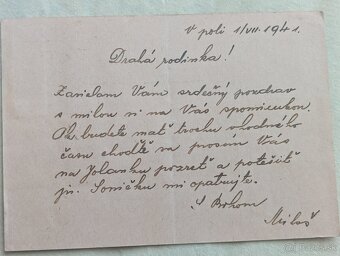 V poli 1/VII. 1941.
Drahá rodinka!
Zasielam Vám srdečný pozdrav
s milou si na Vás spomienkou.
Ak budete mať trochu vhodného
času choďte na prosím Vás
na Jolanku pozreť a potešiť
ju. Soničku mi opatrujte.
S Bohom
Miloš